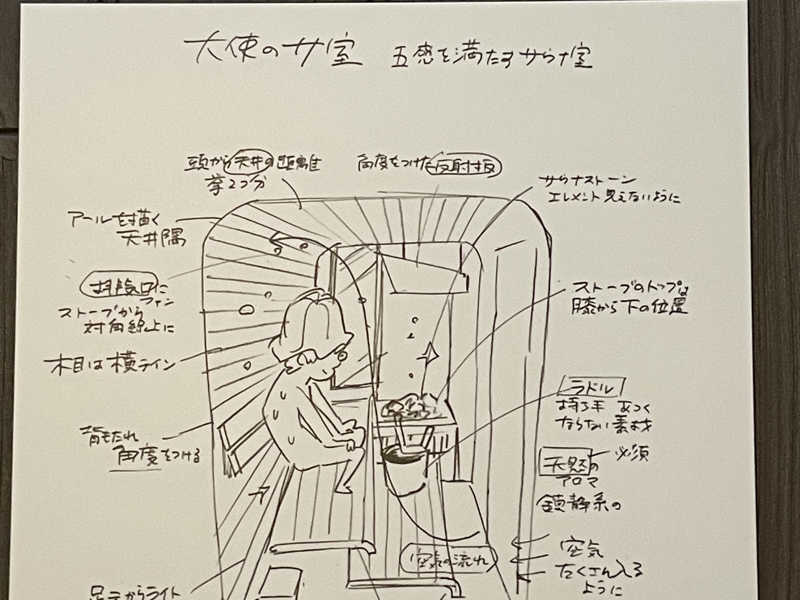 大使のサ室 五感を満たすサウナ室
頭から天井の距離
拳2つ分
角度をつけた反射板
サウナストーン
エレメント見えないように
アールを描く
天井隅
排気口に
ファン
ストーブから
対角線上に
木目は横ライン
背もたれ
角度をつける
足元からライト
ストーブのトップは
膝から下の位置
ラドル
持つ手 あつく
ならない素材
天然の
アロマ
必須
鎮静系の
空気の流れ
空気
たくさん入る
ように